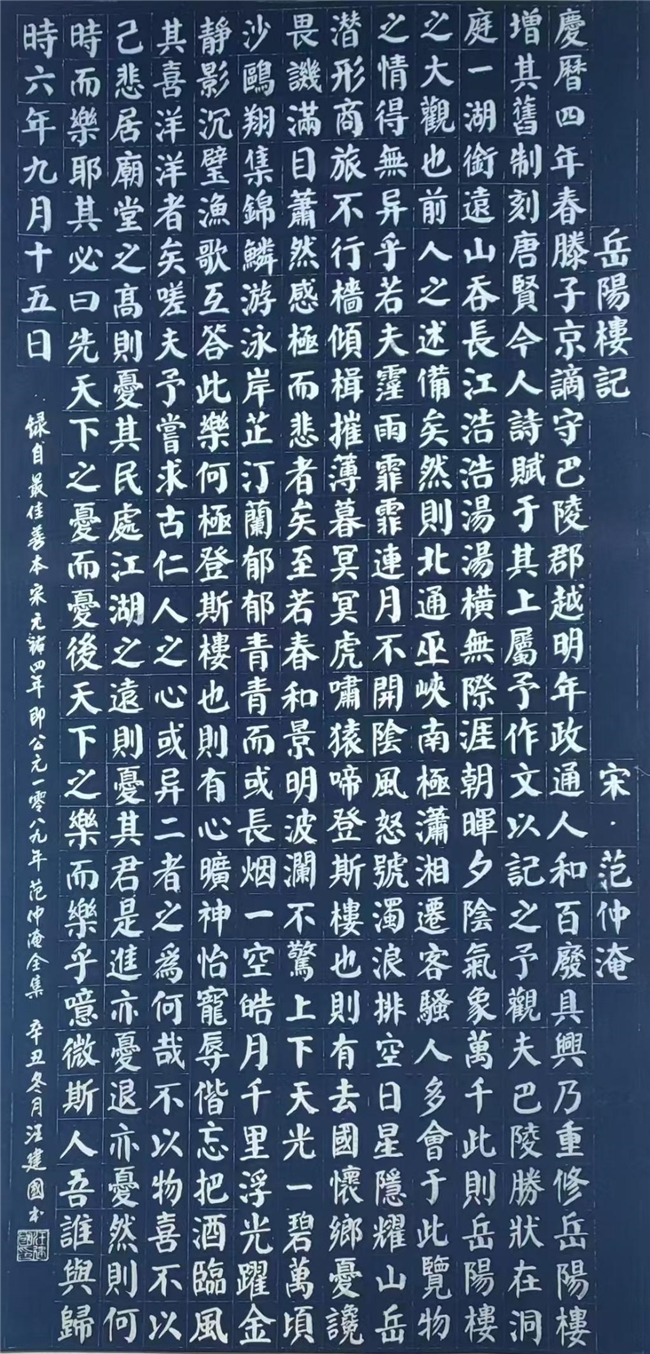 岳陽樓記 宋·范仲淹
慶曆四年春滕子京謫守巴陵郡越明年政通人和百廢具興乃重修岳陽樓
增其舊制刻唐賢今人詩賦于其上屬予作文以記之予觀夫巴陵勝狀在洞
庭一湖銜遠山吞長江浩浩湯湯橫無際涯朝暉夕陰氣象萬千此則岳陽樓
之大觀也前人之述備矣然則北通巫峽南極瀟湘遷客騷人多會于此覽物
之情得無异乎若夫霪雨霏霏連月不開陰風怒號濁浪排空日星隱耀山岳
潜形商旅不行檣傾楫摧薄暮冥冥虎嘯猿啼登斯樓也則有去國懷鄉憂讒
畏譏滿目蕭然感極而悲者矣至若春和景明波瀾不驚上下天光一碧萬頃
沙鷗翔集錦鱗游泳岸芷汀蘭郁郁青青而或長烟一空皓月千里浮光躍金
静影沉璧漁歌互答此樂何極登斯樓也則有心曠神怡寵辱偕忘把酒臨風
其喜洋洋者矣嗟夫予嘗求古仁人之心或异二者之爲何哉不以物喜不以
己悲居廟堂之高則憂其民處江湖之遠則憂其君是進亦憂退亦憂然則何
時而樂耶其必曰先天下之憂而憂後天下之樂而樂乎噫微斯人吾誰與歸
時六年九月十五日
録自最佳善本宋元祐四年即公元一零八九年范仲淹全集 辛丑冬月汪建國书